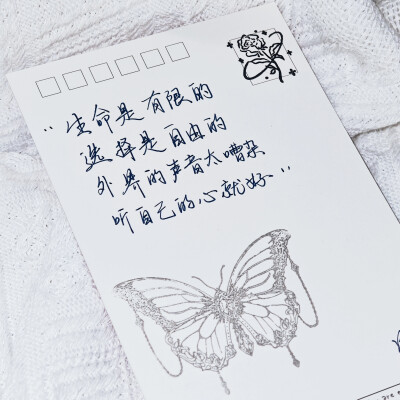 “生命是有限的
选择是自由的
外界的声音太嘈杂
听自己的心就好”